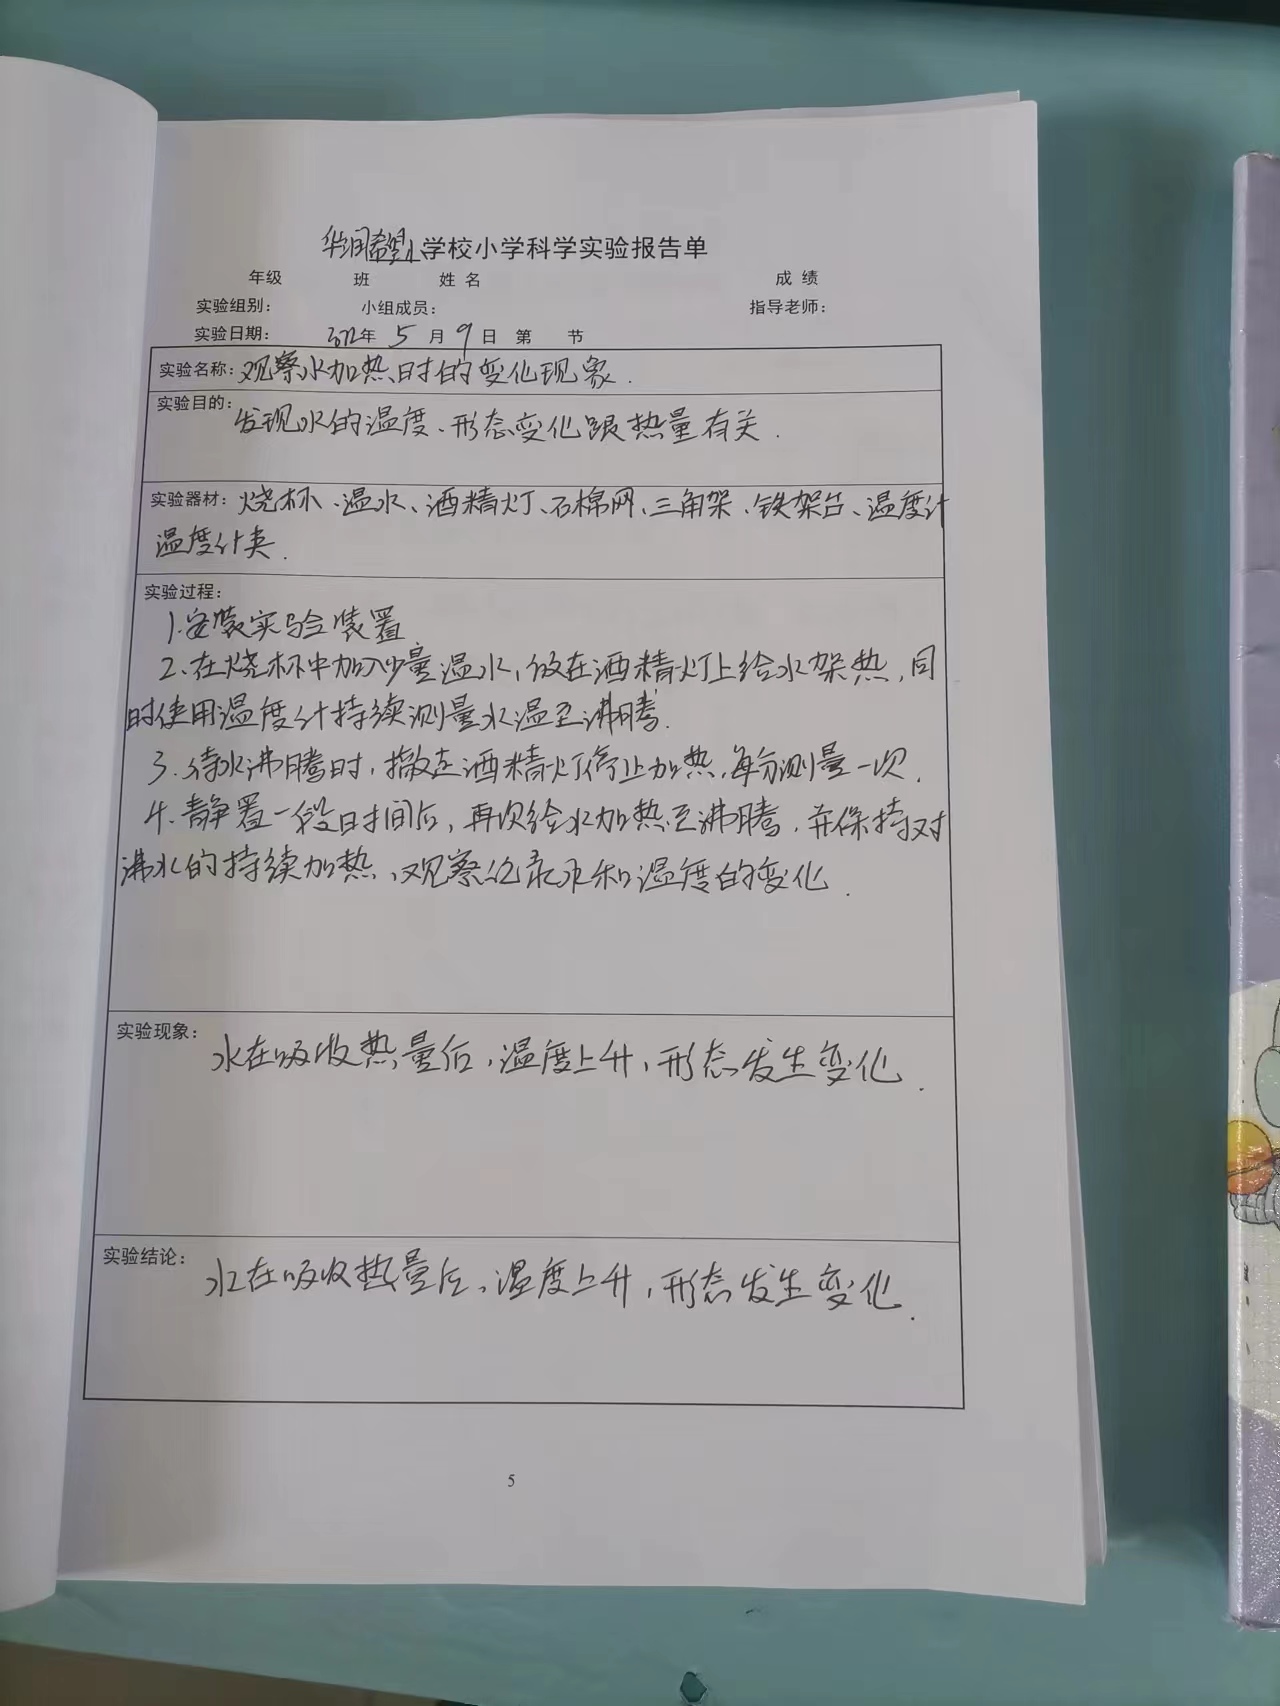 华润希望小学校小学科学实验报告单
年级 班 姓名 成绩
实验组别： 小组成员： 指导老师：
实验日期： 2022年 5 月 9 日 第 节
实验名称：观察水加热时的变化现象.
实验目的：发现水的温度、形态变化跟热量有关.
实验器材：烧杯、温水、酒精灯、石棉网、三角架、铁架台、温度计
温度计夹.
实验过程：
1.安装实验装置
2.在烧杯中加入少量温水,放在酒精灯上给水架热,同
时使用温度计持续测量水温至沸腾.
3.待水沸腾时,撤走酒精灯停止加热,每分测量一次.
4.静置一段时间后,再次给水加热至沸腾,并保持对
沸水的持续加热,观察记录水和温度的变化.
实验现象：水在吸收热量后,温度上升,形态发生变化.
实验结论：水在吸收热量后,温度上升,形态发生变化.
5